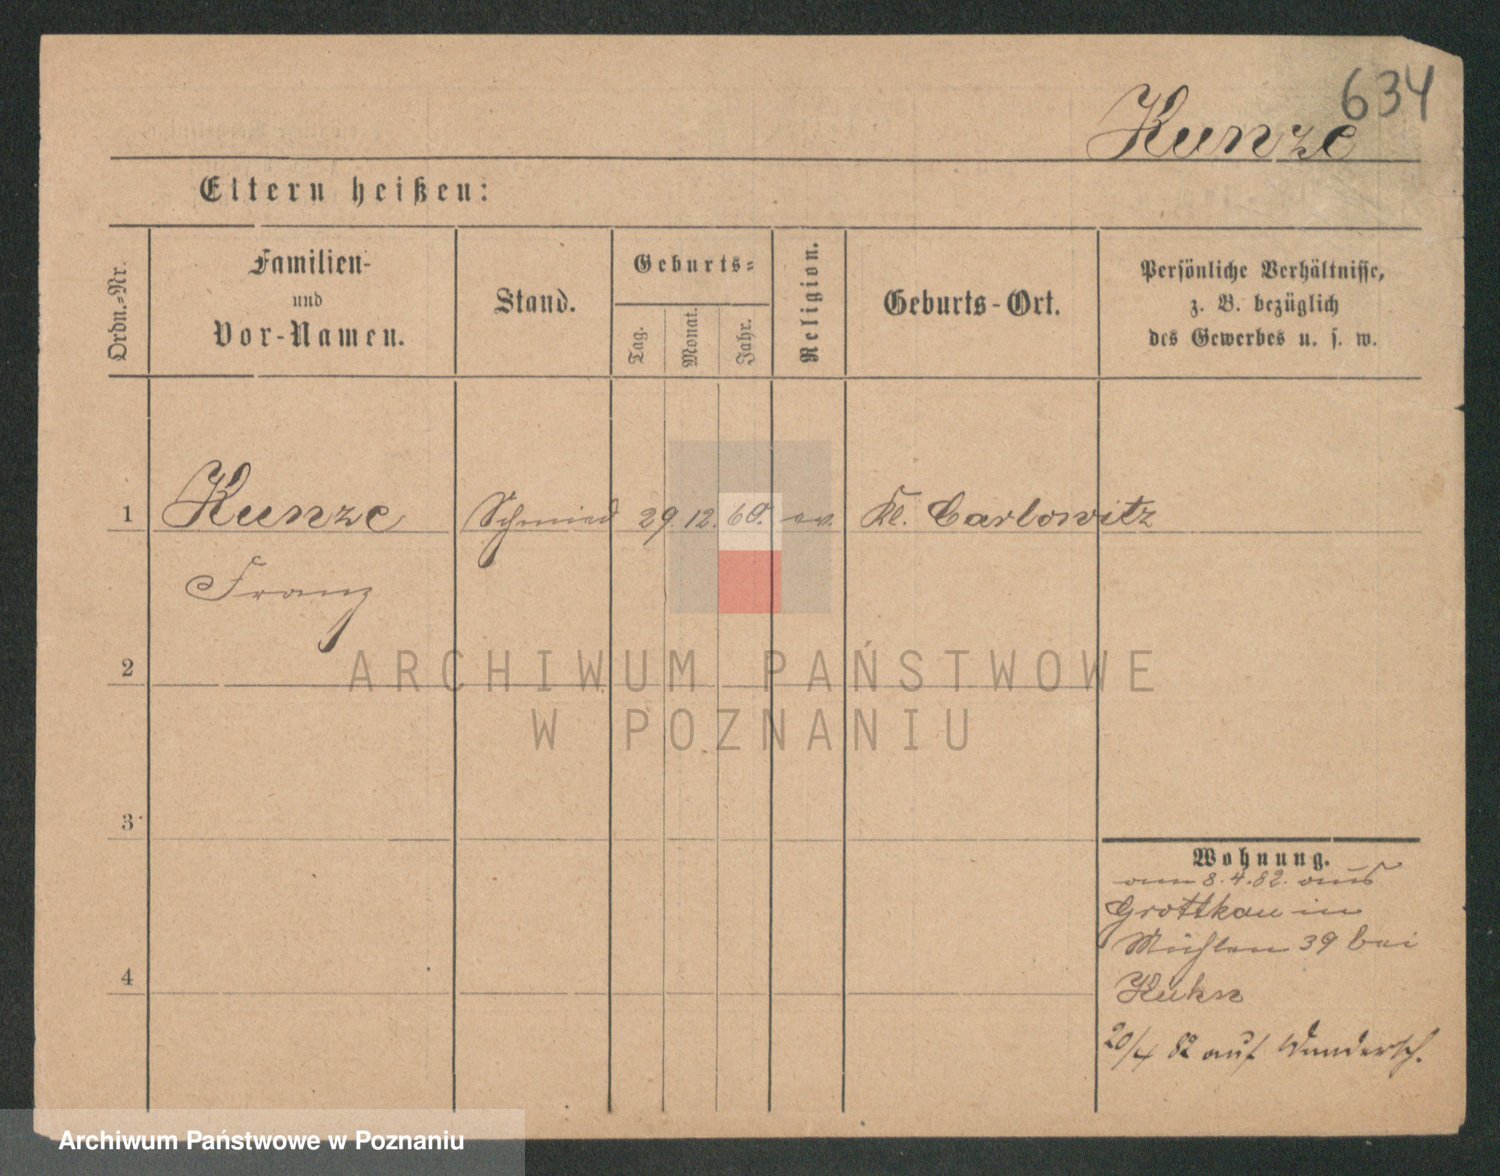 634
Kunze
Eltern heißen:
Ordn.-Nr.
Familien-
und
Vor-Namen.
Stand.
Geburts-
Tag.
Monat.
Jahr.
Religion.
Geburts-Ort.
Persönliche Verhältnisse,
z. B. bezüglich
des Gewerbes u. s. w.
1 Kunze Schmied 29. 12. 60. ev. Kl. Carlowitz
Franz
2
ARCHIWUM PAŃSTWOWE
W POZNANIU
3
Wohnung.
am 8.4.82. aus
Grottkau in
Mühlen 39 bei
4
20/4 82 auf Wandersch.
Archiwum Państwowe w Poznaniu